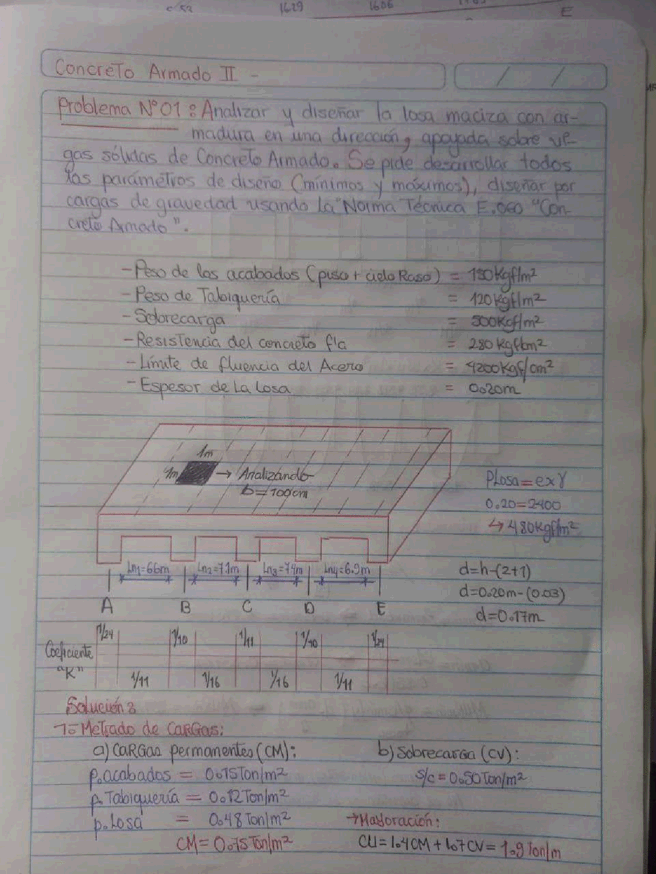 1629 1606
E
Concreto Armado II -
/ /
Problema N°01: Analizar y diseñar la losa maciza con ar-
madura en una dirección, apoyada sobre vi-
gas sólidas de Concreto Armado. Se pide desarrollar todos
los parámetros de diseño (mínimos y máximos), diseñar por
cargas de gravedad usando la "Norma Técnica E.060 "Con-
creto Armado".
- Peso de los acabados (piso + cielo Raso) = 150 Kgf/m²
- Peso de Tabiquería = 120 Kgf/m²
- Sobrecarga = 500 Kgf/m²
- Resistencia del concreto f'c = 280 kgf/cm²
- Límite de fluencia del Acero = 4200 Kgf/cm²
- Espesor de La Losa = 0.20m
1m
1m → Analizando
b=100cm
PLosa = e x γ
0.20 = 2400
↳ 480 Kgf/m²
Ln1=6.6m Ln2=7.1m Ln3=7.4m Ln4=6.9m
A B C D E
d=h-(2+1)
d=0.20m-(0.03)
d=0.17m
1/24 1/10 1/11 1/10 1/24
Coeficiente
"K"
1/11 1/16 1/16 1/11
Solución:
1.- Metrado de CARGas:
a) CARGas permanentes (CM): b) Sobrecarga (CV):
p.acabados = 0.15 Ton/m² s/c = 0.50 Ton/m²
p.Tabiquería = 0.12 Ton/m²
p.Losa = 0.48 Ton/m² → Mayoración:
CM = 0.75 Ton/m² CU = 1.4CM + 1.7CV = 1.9 Ton/m